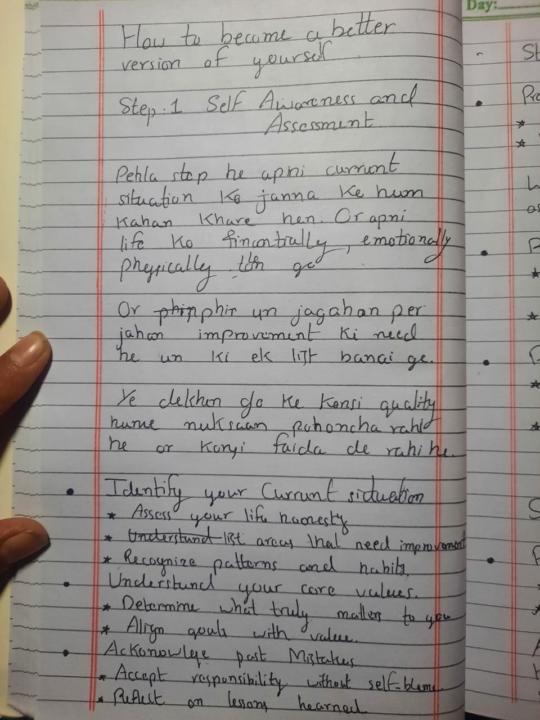 Day:
How to become a better
version of yourself
Step.1 Self Awareness and
Assessment
Pehla step he apni current
situation ko janna ke hum
kahan khare hen. Or apni
life ko finantially, emotionally
physically ge
Or phir un jagahan per
jahan improvement ki need
he un ki ek list banai ge.
Ye dekhen ge ke konsi quality
hume nuksaan pohoncha rahi
he or konsi faida de rahi he.
• Identify your Current situation
* Assess your life honesty
* Understand list areas that need improvement
* Recognize patterns and habits.
• Understand your core values.
* Determine what truly matters to you
* Align goals with value.
• Acknowlege past Mistakes
* Accept responsibility without self-blame
* Reflect on lessons learned